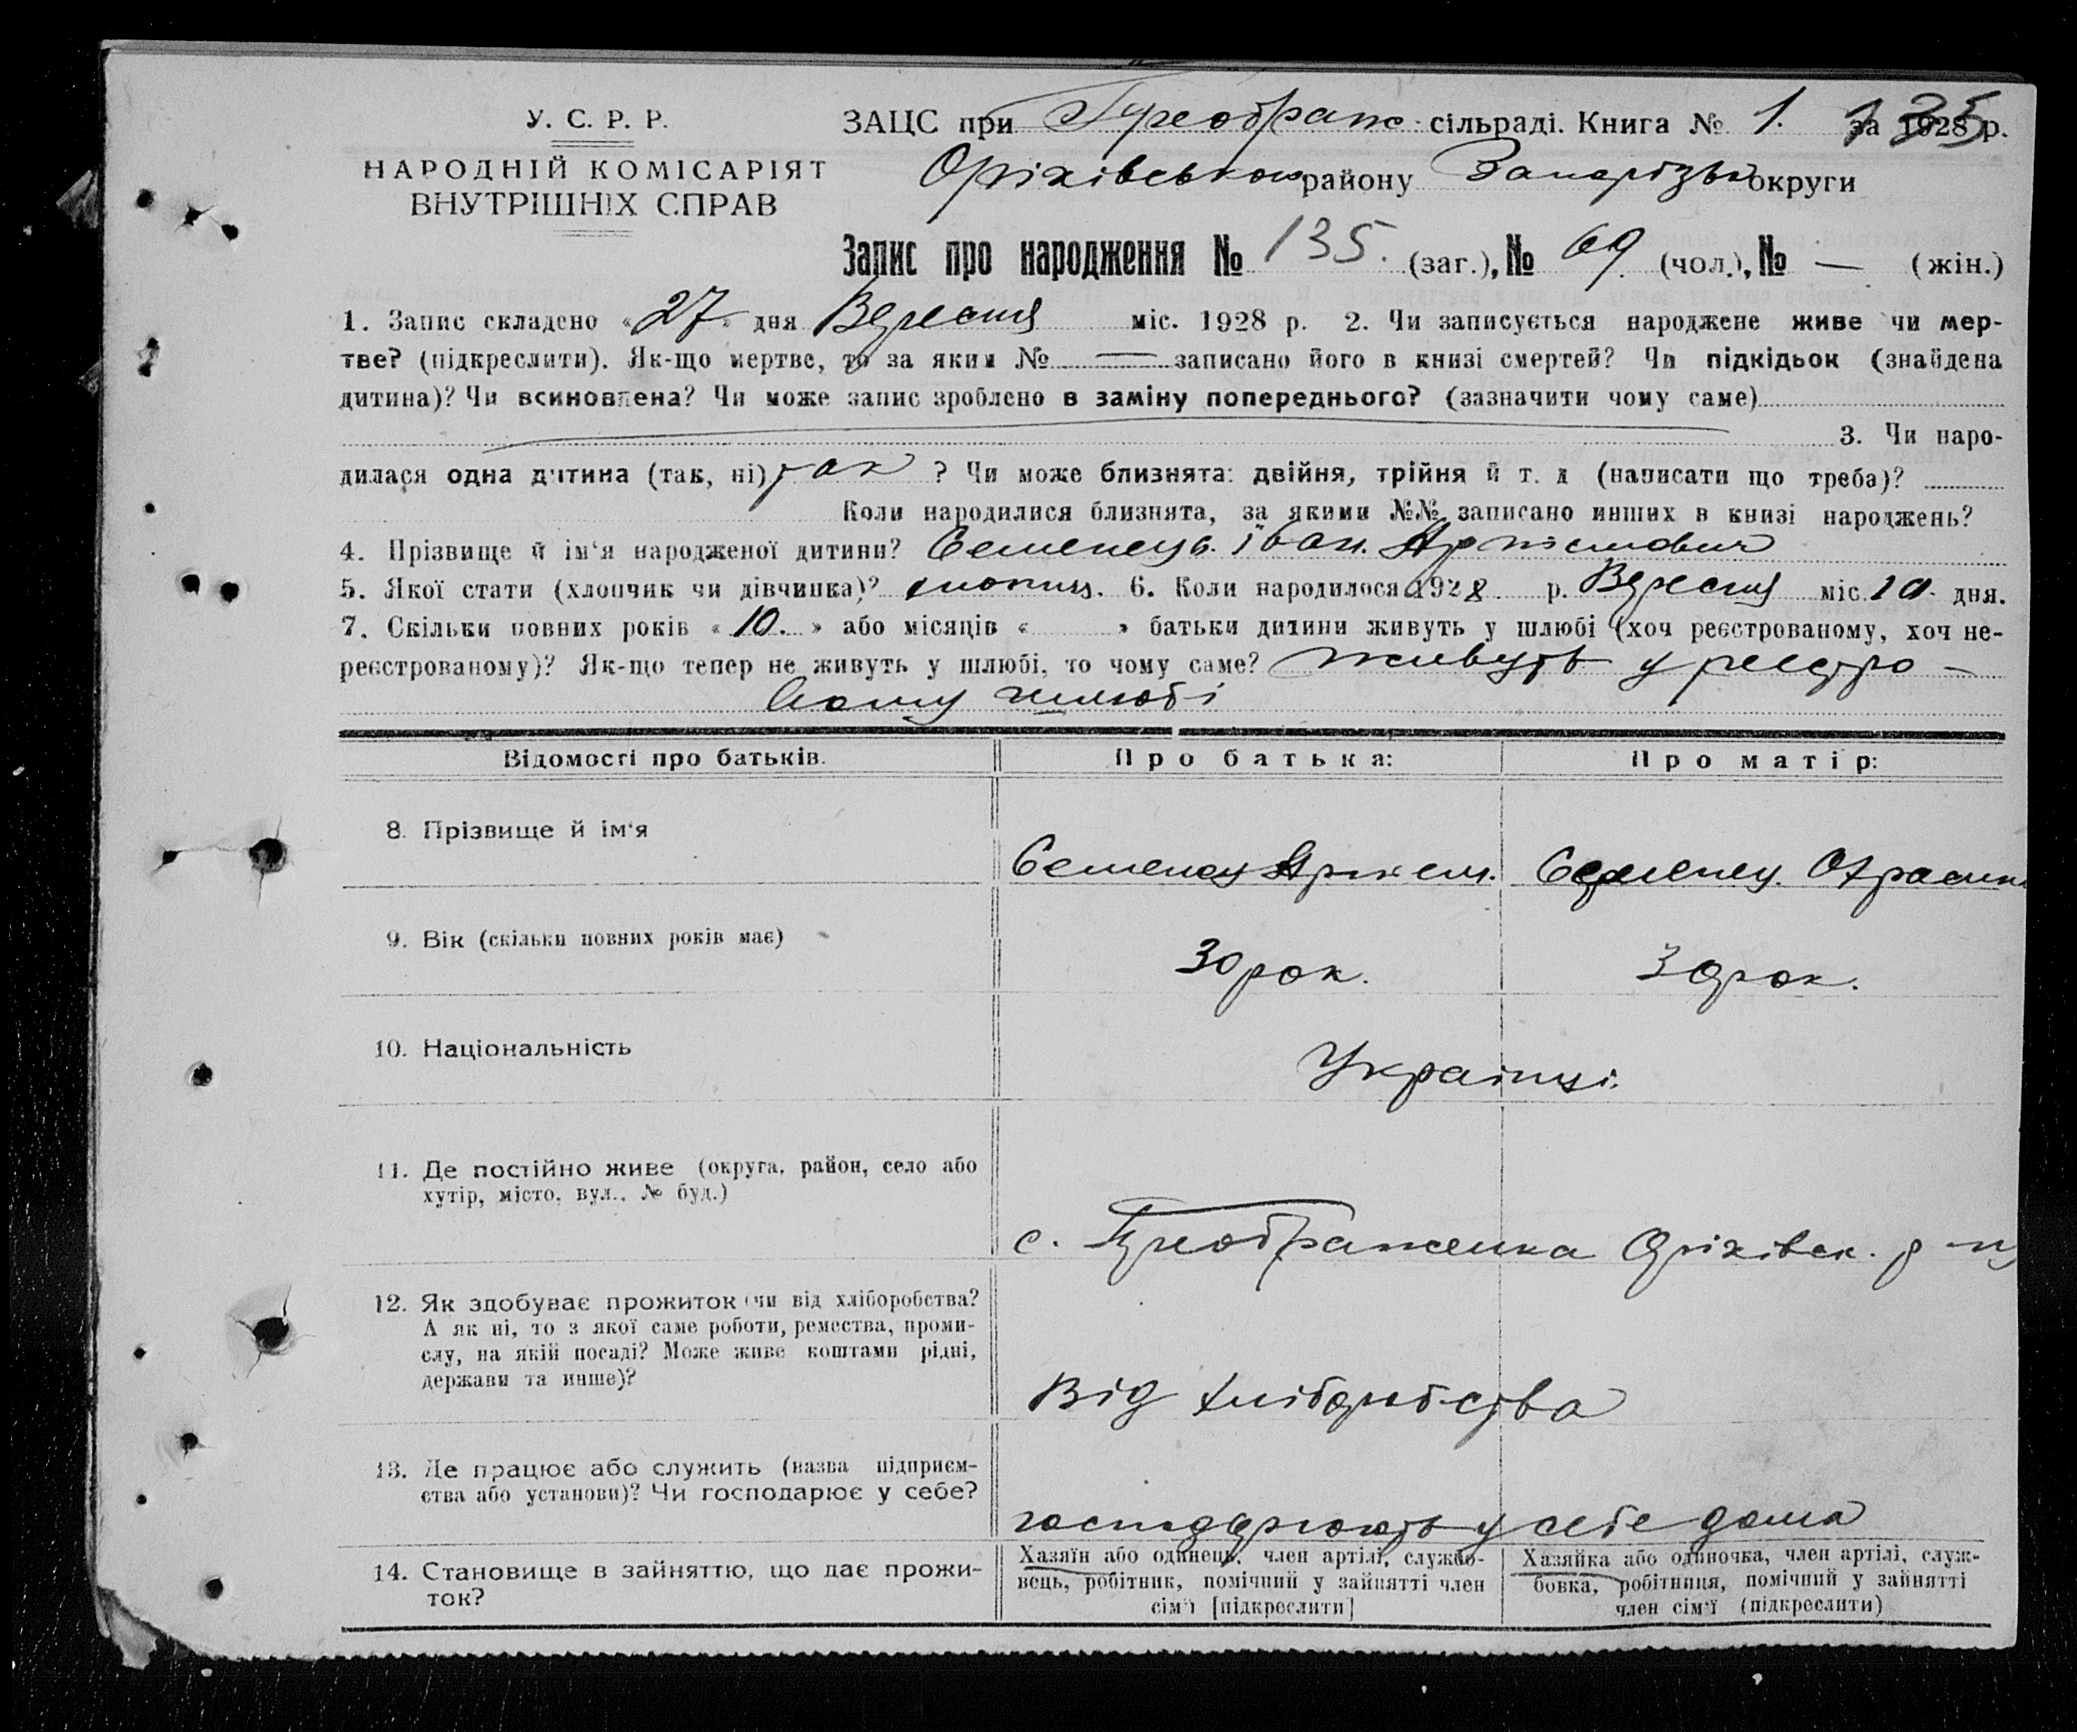 135
У. С. Р. Р.
НАРОДНІЙ КОМІСАРІЯТ
ВНУТРІШНІХ СПРАВ
ЗАЦС при Преображ. сільраді. Книга № 1. за 1928 р.
Оріхівського району Запорізьк округи
Запис про народження № 135. (заг.), № 69. (чол.), № — (жін.)
1. Запис складено « 27 » дня Вересня міс. 1928 р. 2. Чи записується народжене живе чи мер-
тве? (підкреслити). Як-що мертве, то за яким № — записано його в книзі смертей? Чи підкідьок (знайдена
дитина)? Чи всиновлена? Чи може запис зроблено в заміну попереднього? (зазначити чому саме)
3. Чи наро-
дилася одна дитина (так, ні) так ? Чи може близнята: двійня, трійня й т. д (написати що треба)?
Коли народилися близнята, за якими №№ записано инших в книзі народжень?
4. Прізвище й ім'я народженої дитини? Семенець. Іван. Артемович
5. Якої стати (хлопчик чи дівчинка)? хлопиц. 6. Коли народилося 1928 р. Вересня міс. 10. дня.
7. Скільки повних років « 10. » або місяців « » батьки дитини живуть у шлюбі (хоч реєстрованому, хоч не-
реєстрованому)? Як-що тепер не живуть у шлюбі, то чому саме? живуть у реєстро-
ваному шлюбі
Відомості про батьків. Про батька: Про матір:
8. Прізвище й ім'я
Семенец Артем. Семенец.
9. Вік (скільки повних років має)
30 рок. 30 рок.
10. Національність
Українці.
11. Де постійно живе (округа, район, село або
хутір, місто, вул., № буд.)
с. Преображенка Оріхівск. р-ну
12. Як здобуває прожиток (чи від хліборобства?
А як ні, то з якої саме роботи, ремества, проми-
слу, на якій посаді? Може живе коштами рідні,
держави та инше)?
Від хліборобства
13. Де працює або служить (назва підприєм-
ства або установи)? Чи господарює у себе?
господарюють у себе дома
14. Становище в зайняттю, що дає прожи-
ток?
Хазяїн або одинець, член артілі, службо-
вець, робітник, помічний у зайнятті член
сім'ї [підкреслити]
Хазяйка або одиночка, член артілі, служ-
бовка, робітниця, помічний у зайнятті
член сім'ї (підкреслити)